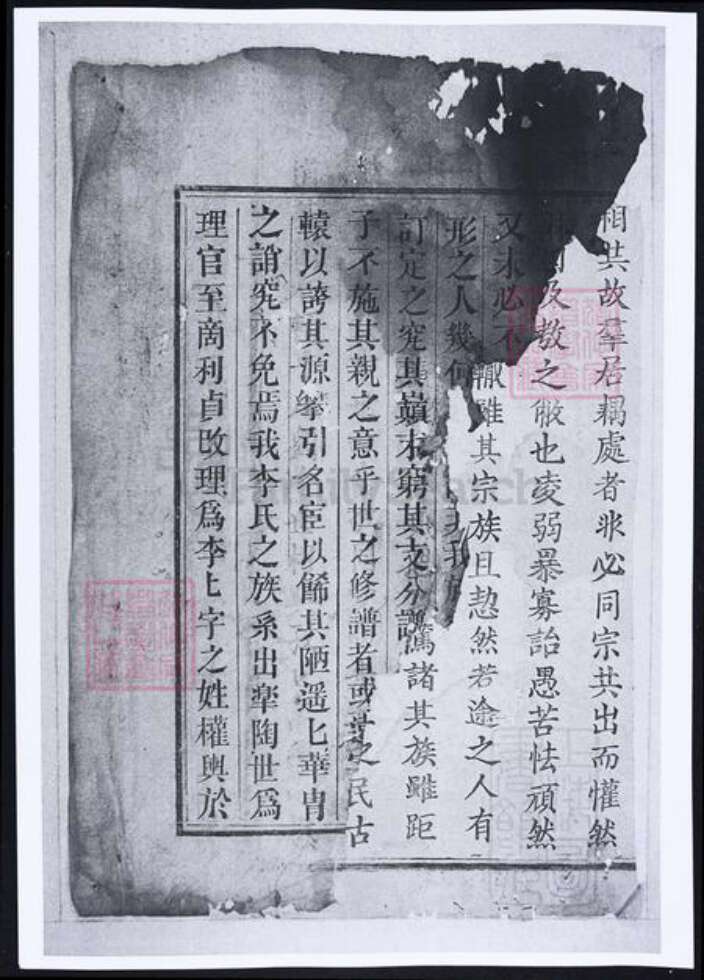 相其故羣居耦處者非必同宗共出而懽然
及敖之敝也凌弱暴寡詒愚苦怯頑然
又未必不 輙雖其宗族且恝然若途之人有
形之人幾何
訂定之究其巔末窮其支分 諸其族雖距
子不施其親之意乎世之修譜者或 民古
轅以誇其源攀引名宦以餙其陋遥匕華胄
之誚究不免焉我李氏之族系出臯陶世爲
理官至啇利貞改理爲李匕字之姓權輿於